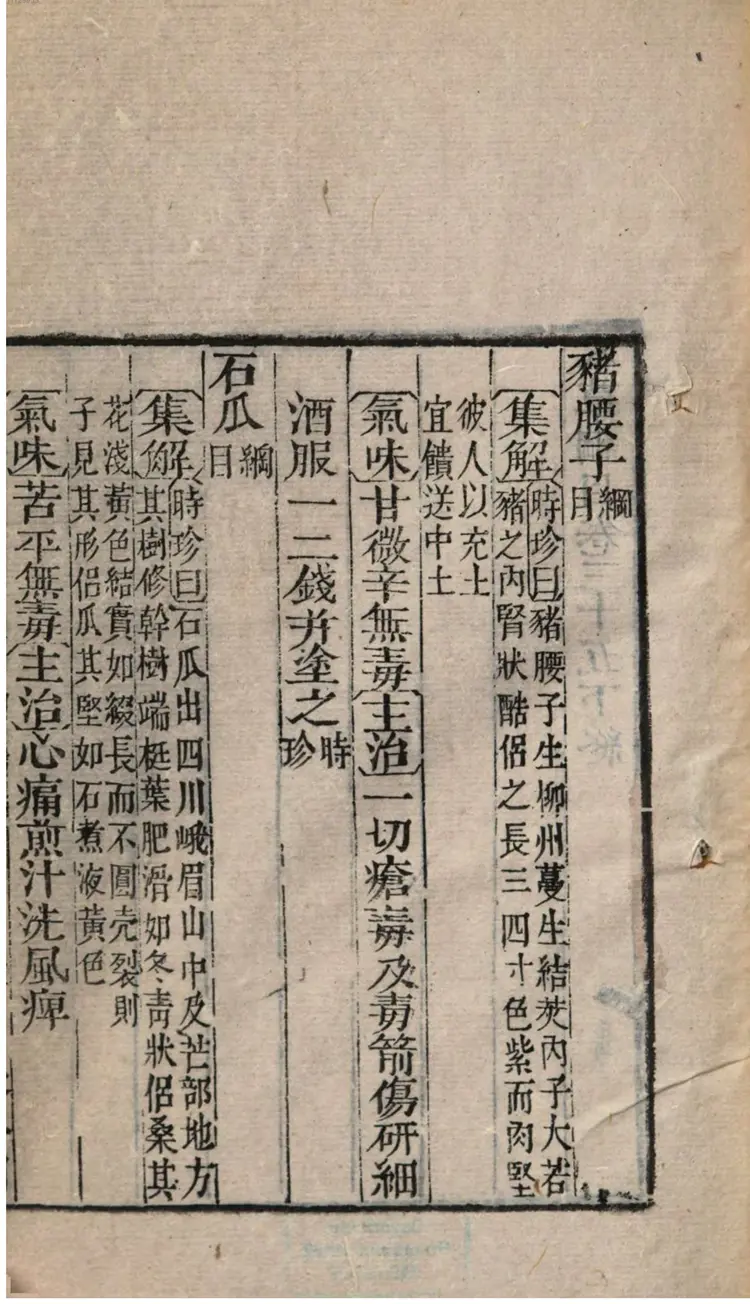 豬腰子綱目
集解時珍曰豬腰子生柳州蔓生結莢內子大若
豬之內腎狀酷侣之長三四寸色紫而肉堅
彼人以充土
宜饋送中土
氣味甘微辛無毒主治一切瘡毒及毒箭傷研細
酒服一二錢并塗之時珍
石瓜綱目
集解時珍曰石瓜出四川峨眉山中及芒部地方
其樹修幹樹端挺葉肥滑如冬青狀侣桑其
花淺黃色結實如綴長而不圓壳裂則
子見其形侣瓜其堅如石煮液黃色
氣味苦平無毒主治心痛煎汁洗風痺